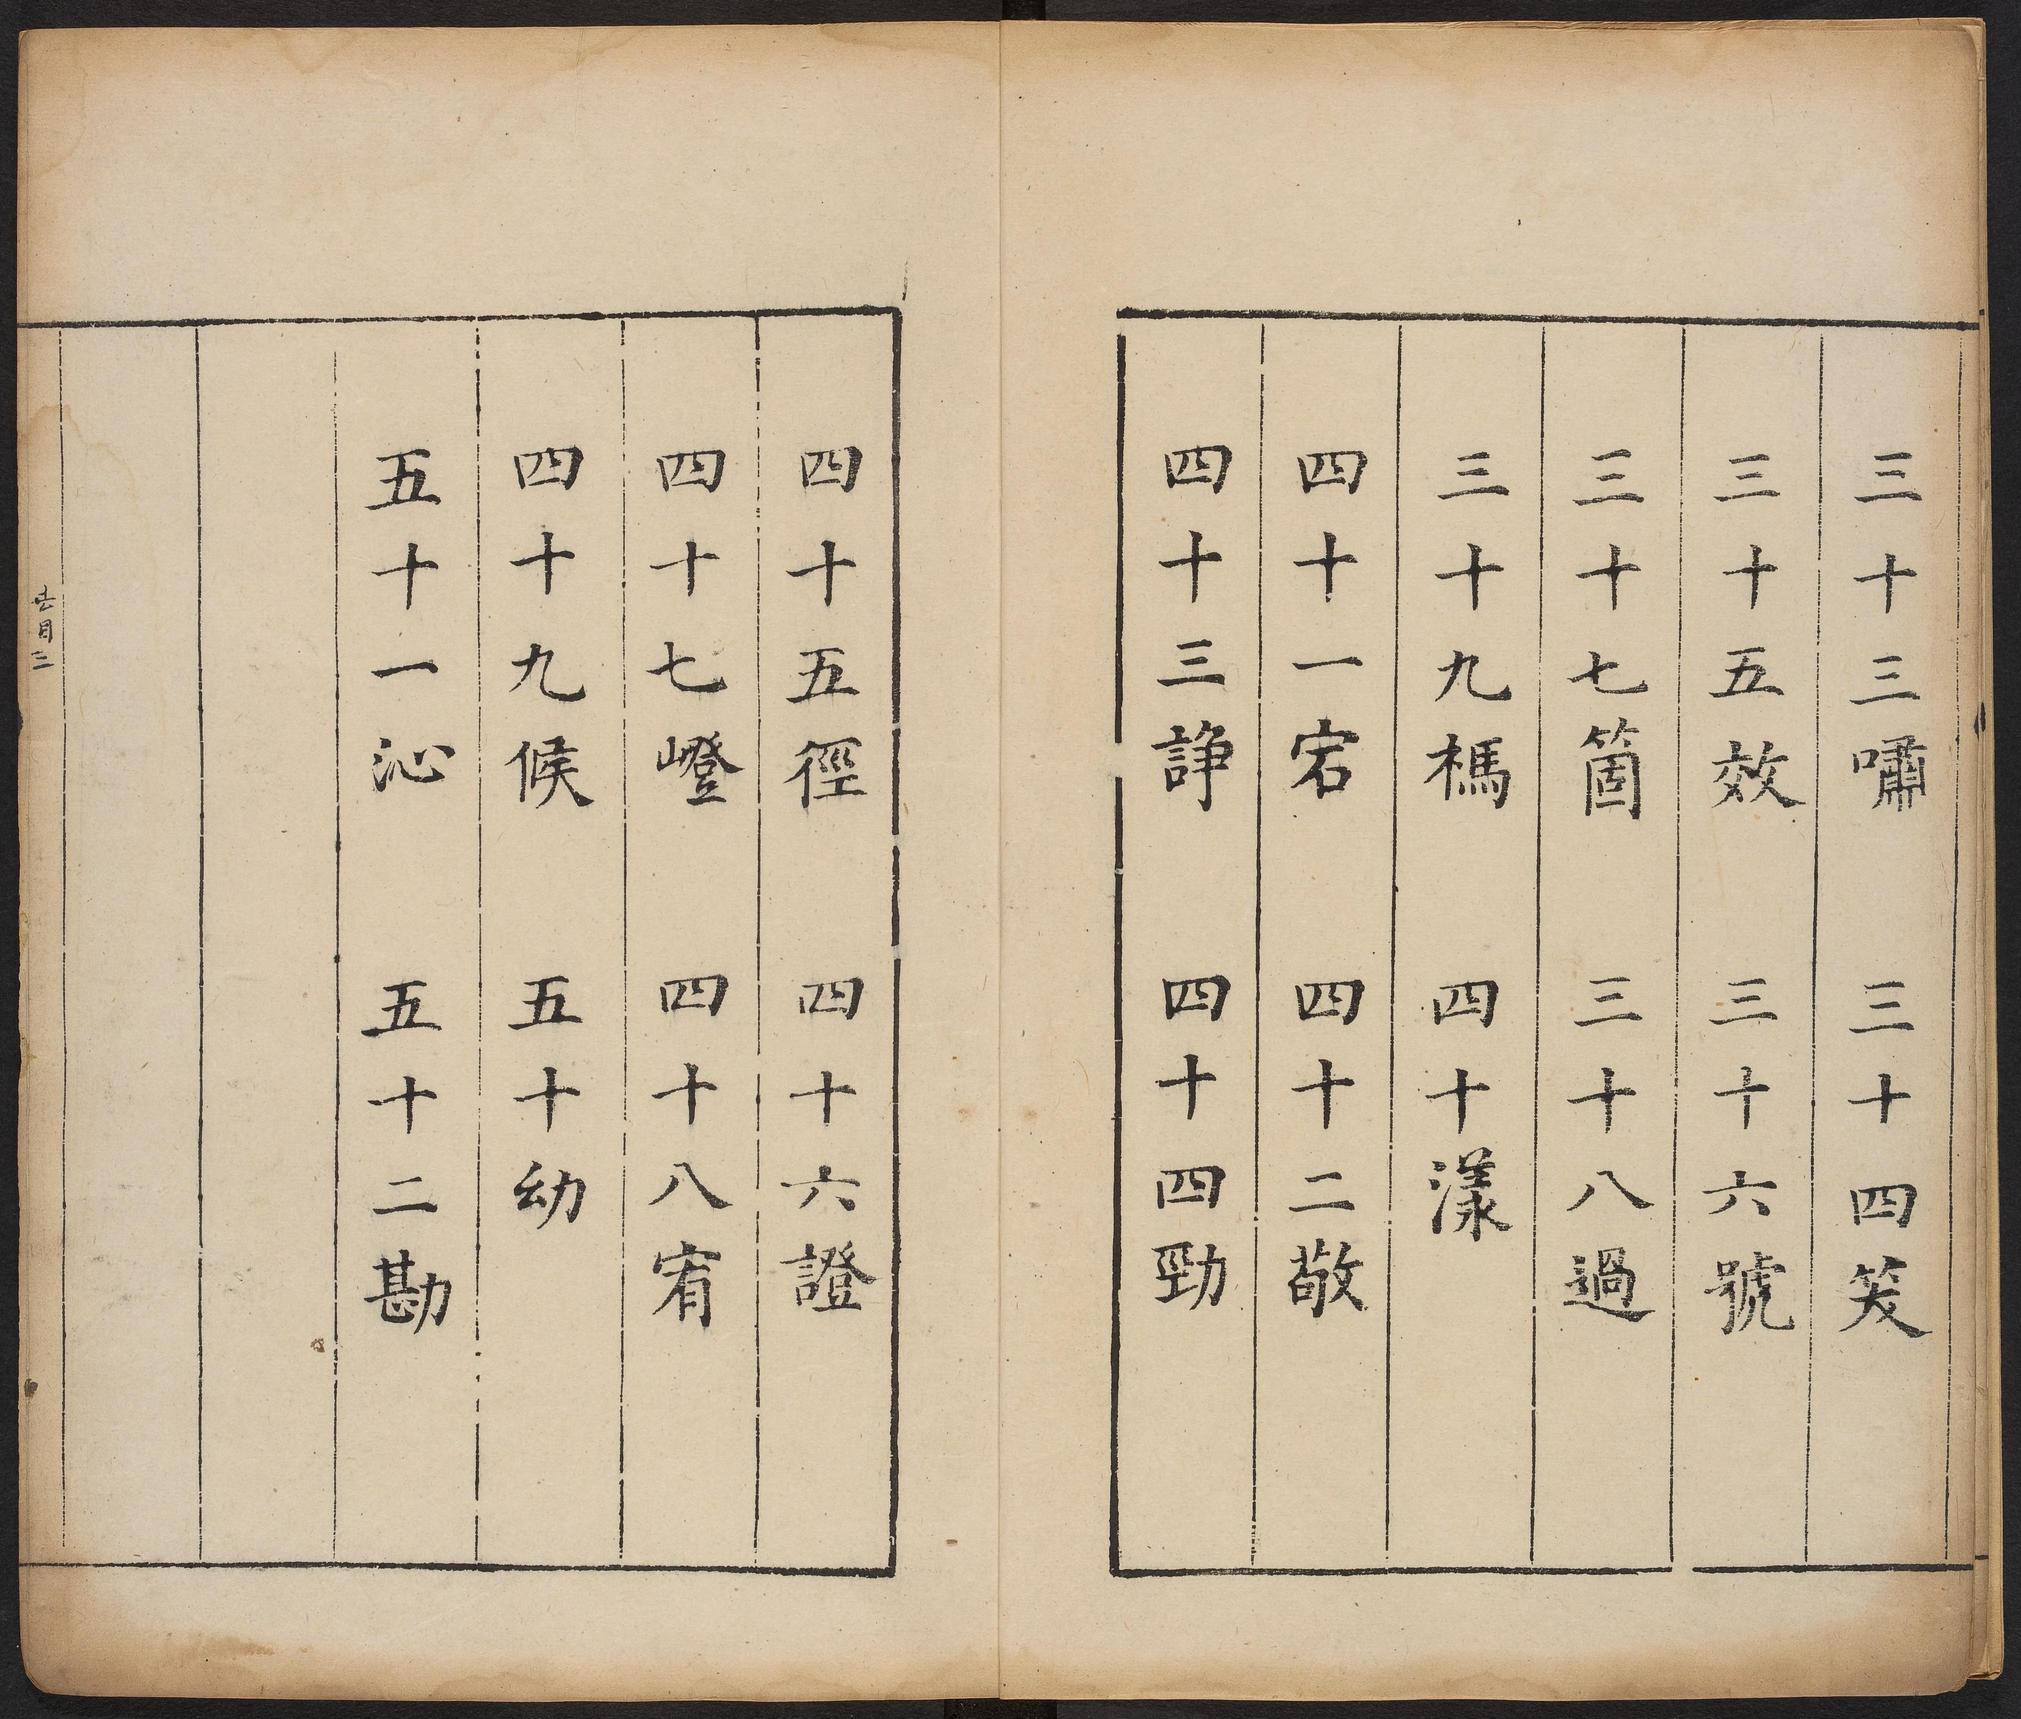 三十三嘯　三十四笑
三十五效　三十六號
三十七箇　三十八過
三十九禡　四十漾
四十一宕　四十二敬
四十三諍　四十四勁
四十五徑　四十六證
四十七嶝　四十八宥
四十九候　五十幼
五十一沁　五十二勘
去目三